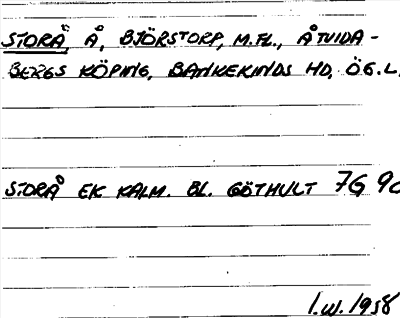 STORÅ, Å, BJÖRSTORP, M.FL., ÅTVIDA-
BERGS KÖPING, BANKEKINDS HD, ÖG.L.
STORÅ EK KALM. BL. GÖTHULT 7G 9c
I.W. 1958